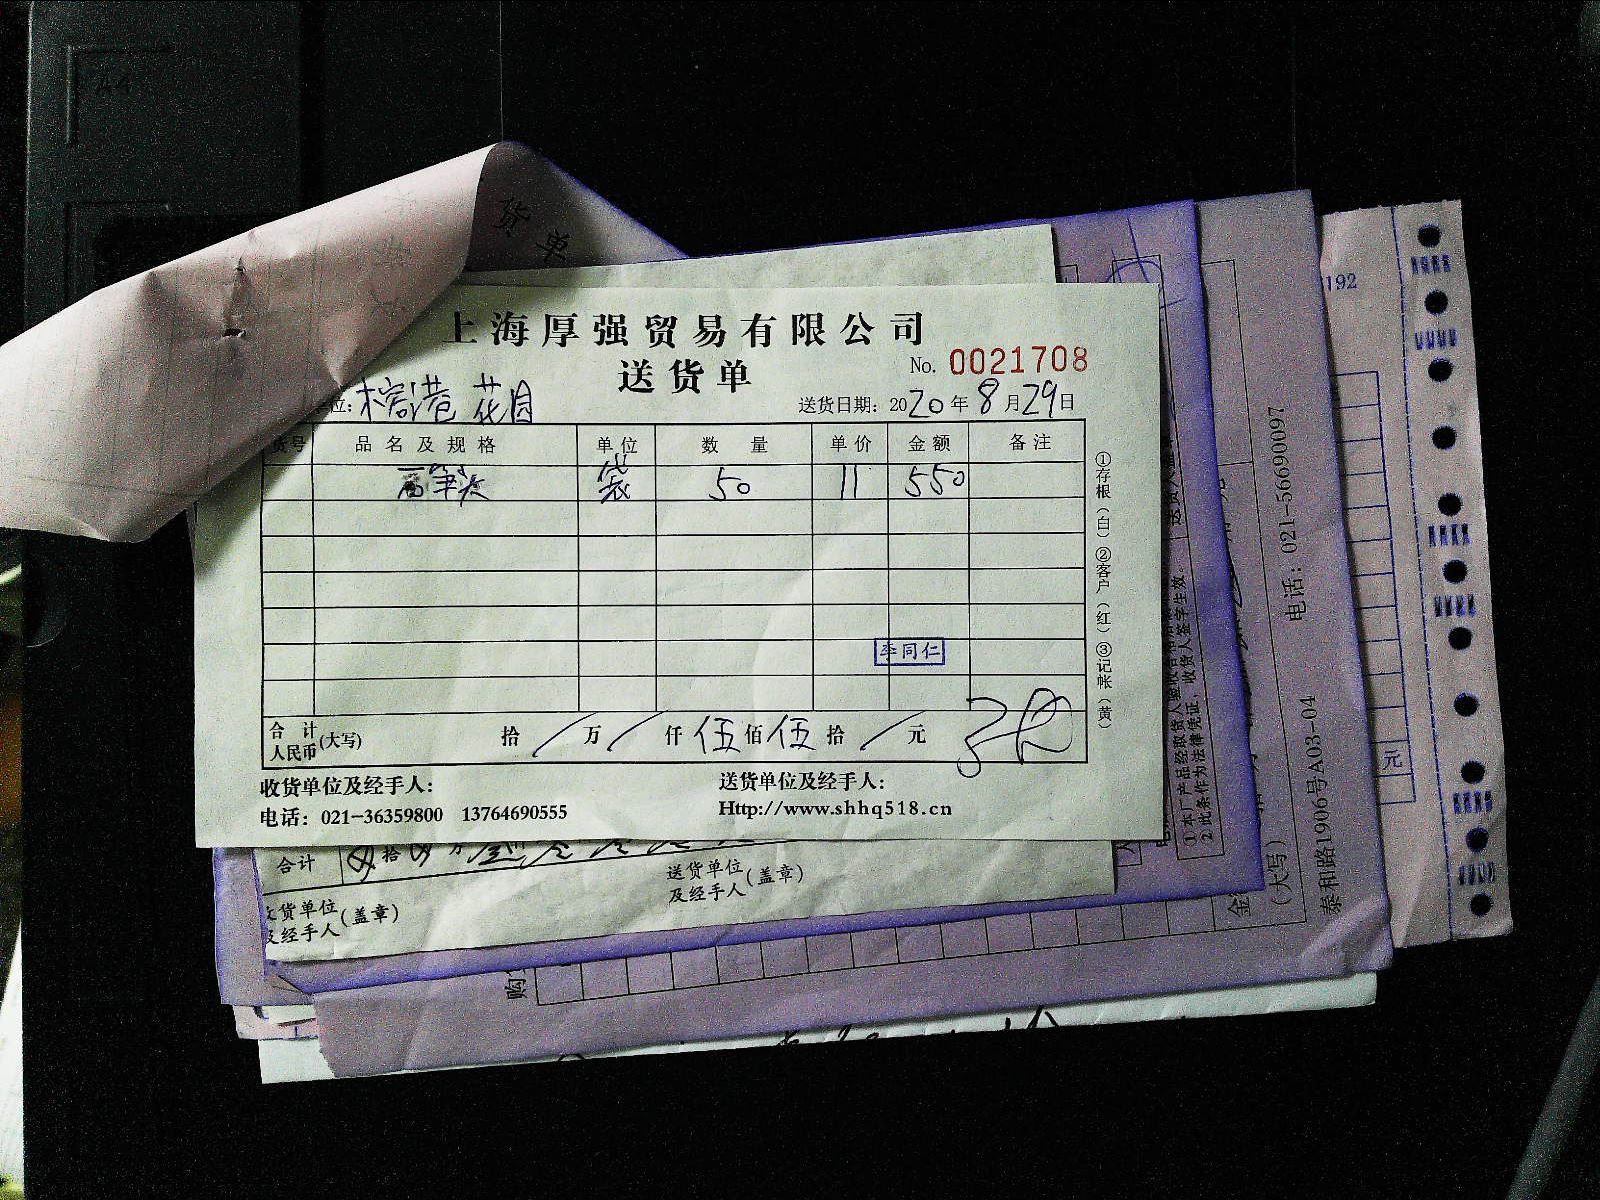 货单
上海厚强贸易有限公司
送货单
No. 0021708
位: 港花园
送货日期: 2020年8月29日
货号 品名及规格 单位 数量 单价 金额 备注
袋 50 11 550
李同仁
合计人民币(大写) 拾 / 万 / 仟 伍 佰 伍 拾 / 元
收货单位及经手人:
送货单位及经手人:
电话: 021-36359800 13764690555
Http://www.shhq518.cn
①存根(白)②客户(红)③记帐(黄)
合计 拾 万
送货单位及经手人(盖章)
货单位及经手人(盖章)
2此条作为法律凭证,收货人签字生效。
电话: 021-56690097
泰和路1906号A03-04
(大写)
金
购
192
元